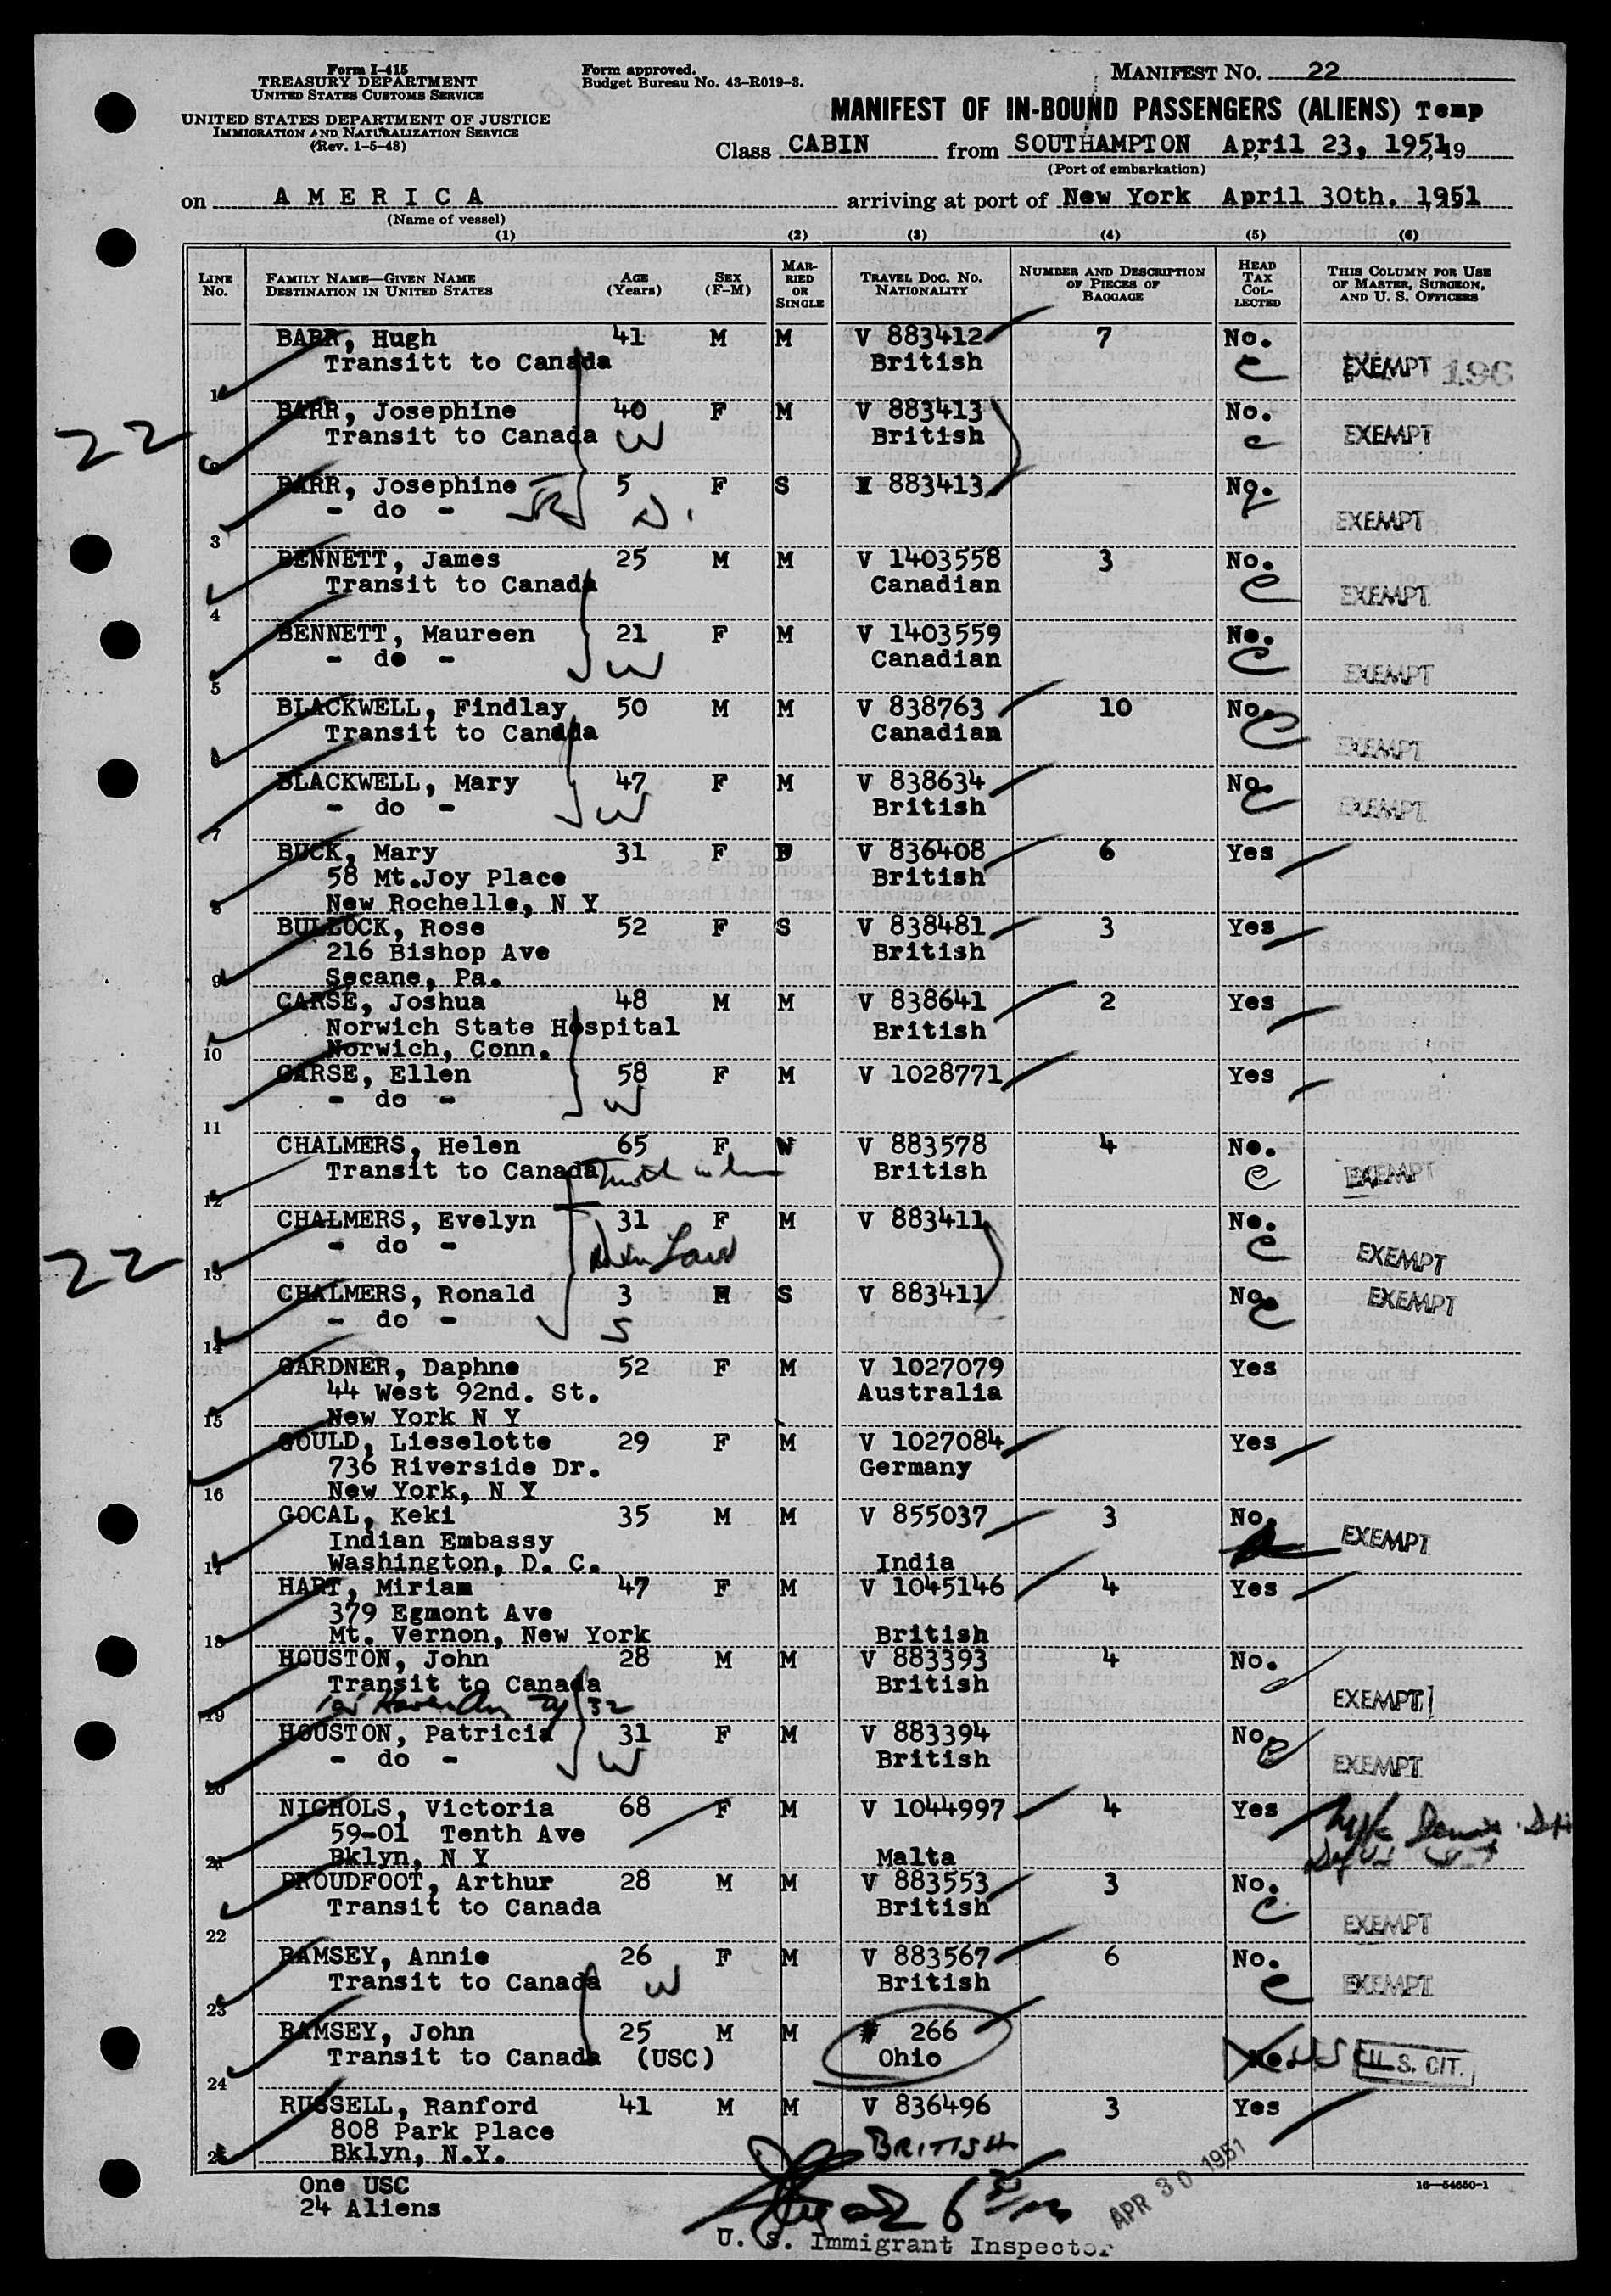 Form I-415
TREASURY DEPARTMENT
UNITED STATES CUSTOMS SERVICE
UNITED STATES DEPARTMENT OF JUSTICE
IMMIGRATION AND NATURALIZATION SERVICE
(Rev. 1-5-48)
Form approved.
Budget Bureau No. 43-R019-3.
MANIFEST NO. 22
MANIFEST OF IN-BOUND PASSENGERS (ALIENS) Temp
Class CABIN from SOUTHAMPTON April 23, 1951, 19
(Port of embarkation)
on A M E R I C A arriving at port of New York April 30th. 1951
(Name of vessel)
(1) (2) (3) (4) (5) (6)
LINE No.
FAMILY NAME—GIVEN NAME
DESTINATION IN UNITED STATES
AGE (Years)
SEX (F-M)
MARRIED OR SINGLE
TRAVEL DOC. NO. NATIONALITY
NUMBER AND DESCRIPTION OF PIECES OF BAGGAGE
HEAD TAX COLLECTED
THIS COLUMN FOR USE OF MASTER, SURGEON, AND U. S. OFFICERS
BARR, Hugh 41 M M V 883412 7 No.
Transitt to Canada British EXEMPT 196
1
22
BARR, Josephine 40 F M V 883413 No.
Transit to Canada W British EXEMPT
BARR, Josephine 5 F S 883413 No.
- do - JR D. EXEMPT
3
BENNETT, James 25 M M V 1403558 3 No.
Transit to Canada Canadian EXEMPT
4
BENNETT, Maureen 21 F M V 1403559 No.
- do - W Canadian EXEMPT
5
BLACKWELL, Findlay 50 M M V 838763 10 No.
Transit to Canada Canadian EXEMPT
6
BLACKWELL, Mary 47 F M V 838634 No.
- do - W British EXEMPT
7
BUCK, Mary 31 F V 836408 6 Yes
58 Mt.Joy Place British
8 New Rochelle, N Y
BULLOCK, Rose 52 F S V 838481 3 Yes
216 Bishop Ave British
9 Secane, Pa.
CARSE, Joshua 48 M M V 838641 2 Yes
Norwich State Hospital British
10 Norwich, Conn.
CARSE, Ellen 58 F M V 1028771 Yes
- do - W
11
CHALMERS, Helen 65 F W V 883578 4 No.
Transit to Canada British EXEMPT
12
CHALMERS, Evelyn 31 F M V 883411 No.
- do - Law EXEMPT
22
13
CHALMERS, Ronald 3 M S V 883411 No. EXEMPT
- do - S
14
GARDNER, Daphne 52 F M V 1027079 Yes
44 West 92nd. St. Australia
15 New York N Y
GOULD, Lieselotte 29 F M V 1027084 Yes
736 Riverside Dr. Germany
16 New York, N Y
GOCAL, Keki 35 M M V 855037 3 No.
Indian Embassy EXEMPT
17 Washington, D. C. India
HART, Miriam 47 F M V 1045146 4 Yes
379 Egmont Ave
18 Mt. Vernon, New York British
HOUSTON, John 28 M M V 883393 4 No.
Transit to Canada British EXEMPT
19 32
HOUSTON, Patricia 31 F M V 883394 No.
- do - W British EXEMPT
20
NICHOLS, Victoria 68 F M V 1044997 4 Yes
59-01 Tenth Ave
21 Bklyn, N Y Malta
PROUDFOOT, Arthur 28 M M V 883553 3 No.
Transit to Canada British EXEMPT
22
RAMSEY, Annie 26 F M V 883567 6 No.
Transit to Canada W British EXEMPT
23
RAMSEY, John 25 M M # 266
Transit to Canada (USC) Ohio No. US U. S. CIT.
24
RUSSELL, Ranford 41 M M V 836496 3 Yes
808 Park Place
25 Bklyn, N.Y. BRITISH
One USC
24 Aliens
16—54650-1
APR 30 1951
U. S. Immigrant Inspector